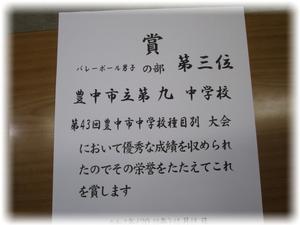 賞
バレーボール男子 の部 第三位
豊中市立第九 中学校
第43回豊中市中学校種目別 大会
において優秀な成績を収められ
たのでその栄誉をたたえてこれ
を賞します